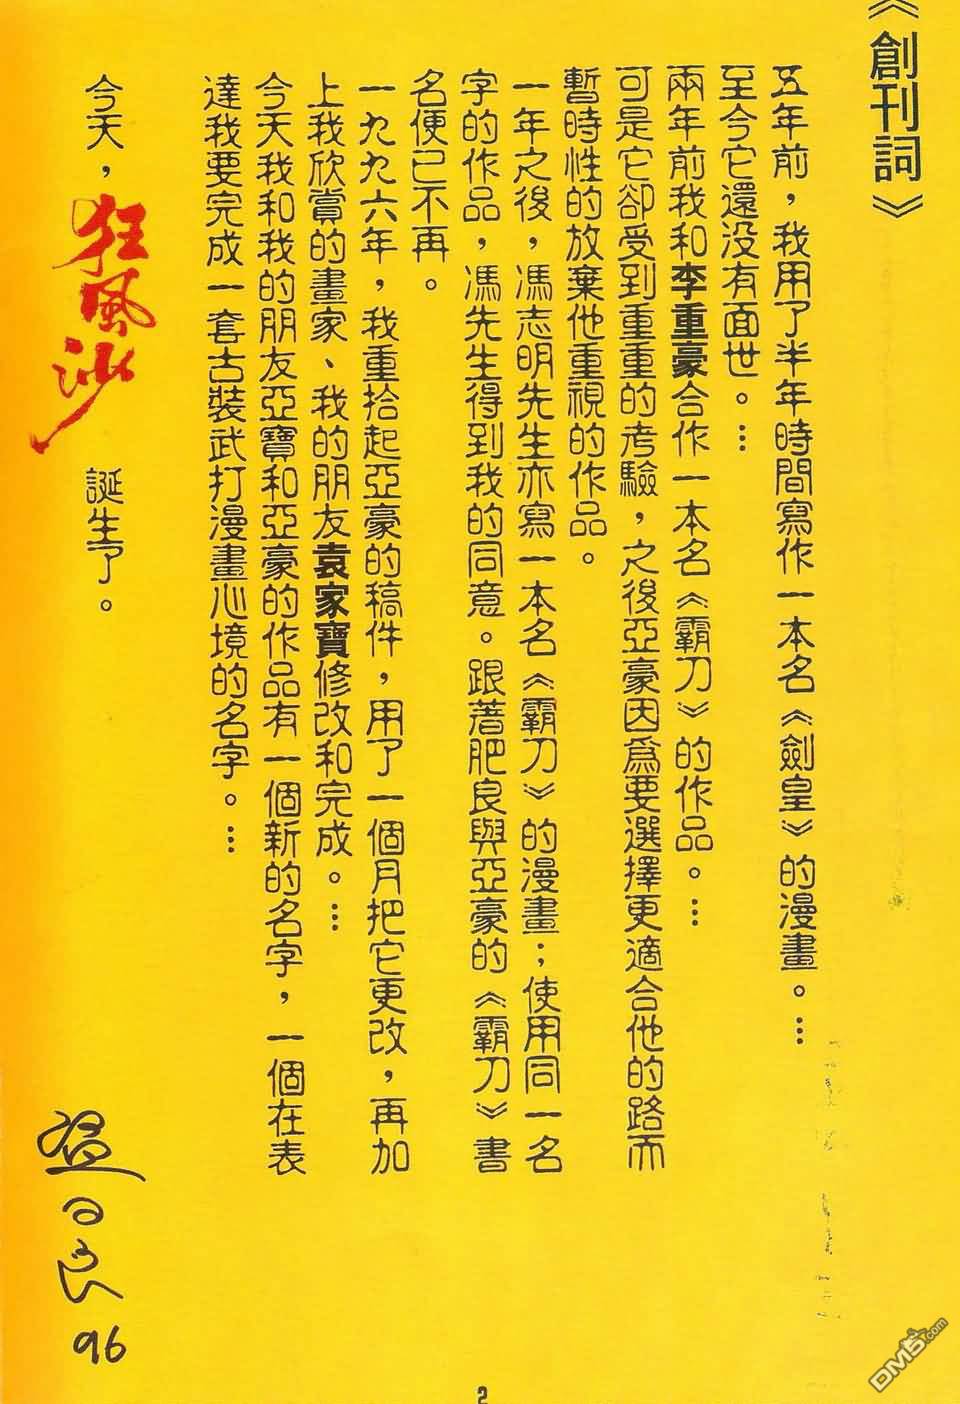 《創刊詞》
五年前，我用了半年時間寫作一本名《劍皇》的漫畫。…
至今它還没有面世。…
兩年前我和李重豪合作一本名《霸刀》的作品。…
可是它卻受到重重的考驗，之後亞豪因爲要選擇更適合他的路而
暫時性的放棄他重視的作品。
一年之後，馮志明先生亦寫一本名《霸刀》的漫畫；使用同一名
字的作品，馮先生得到我的同意。跟著肥良與亞豪的《霸刀》書
名便已不再。
一九九六年，我重拾起亞豪的稿件，用了一個月把它更改，再加
上我欣賞的畫家、我的朋友袁家寶修改和完成。…
今天我和我的朋友亞寶和亞豪的作品有一個新的名字，一個在表
達我要完成一套古裝武打漫畫心境的名字。…
今天，狂風沙 誕生了。
温日良
96
2
DM5.com